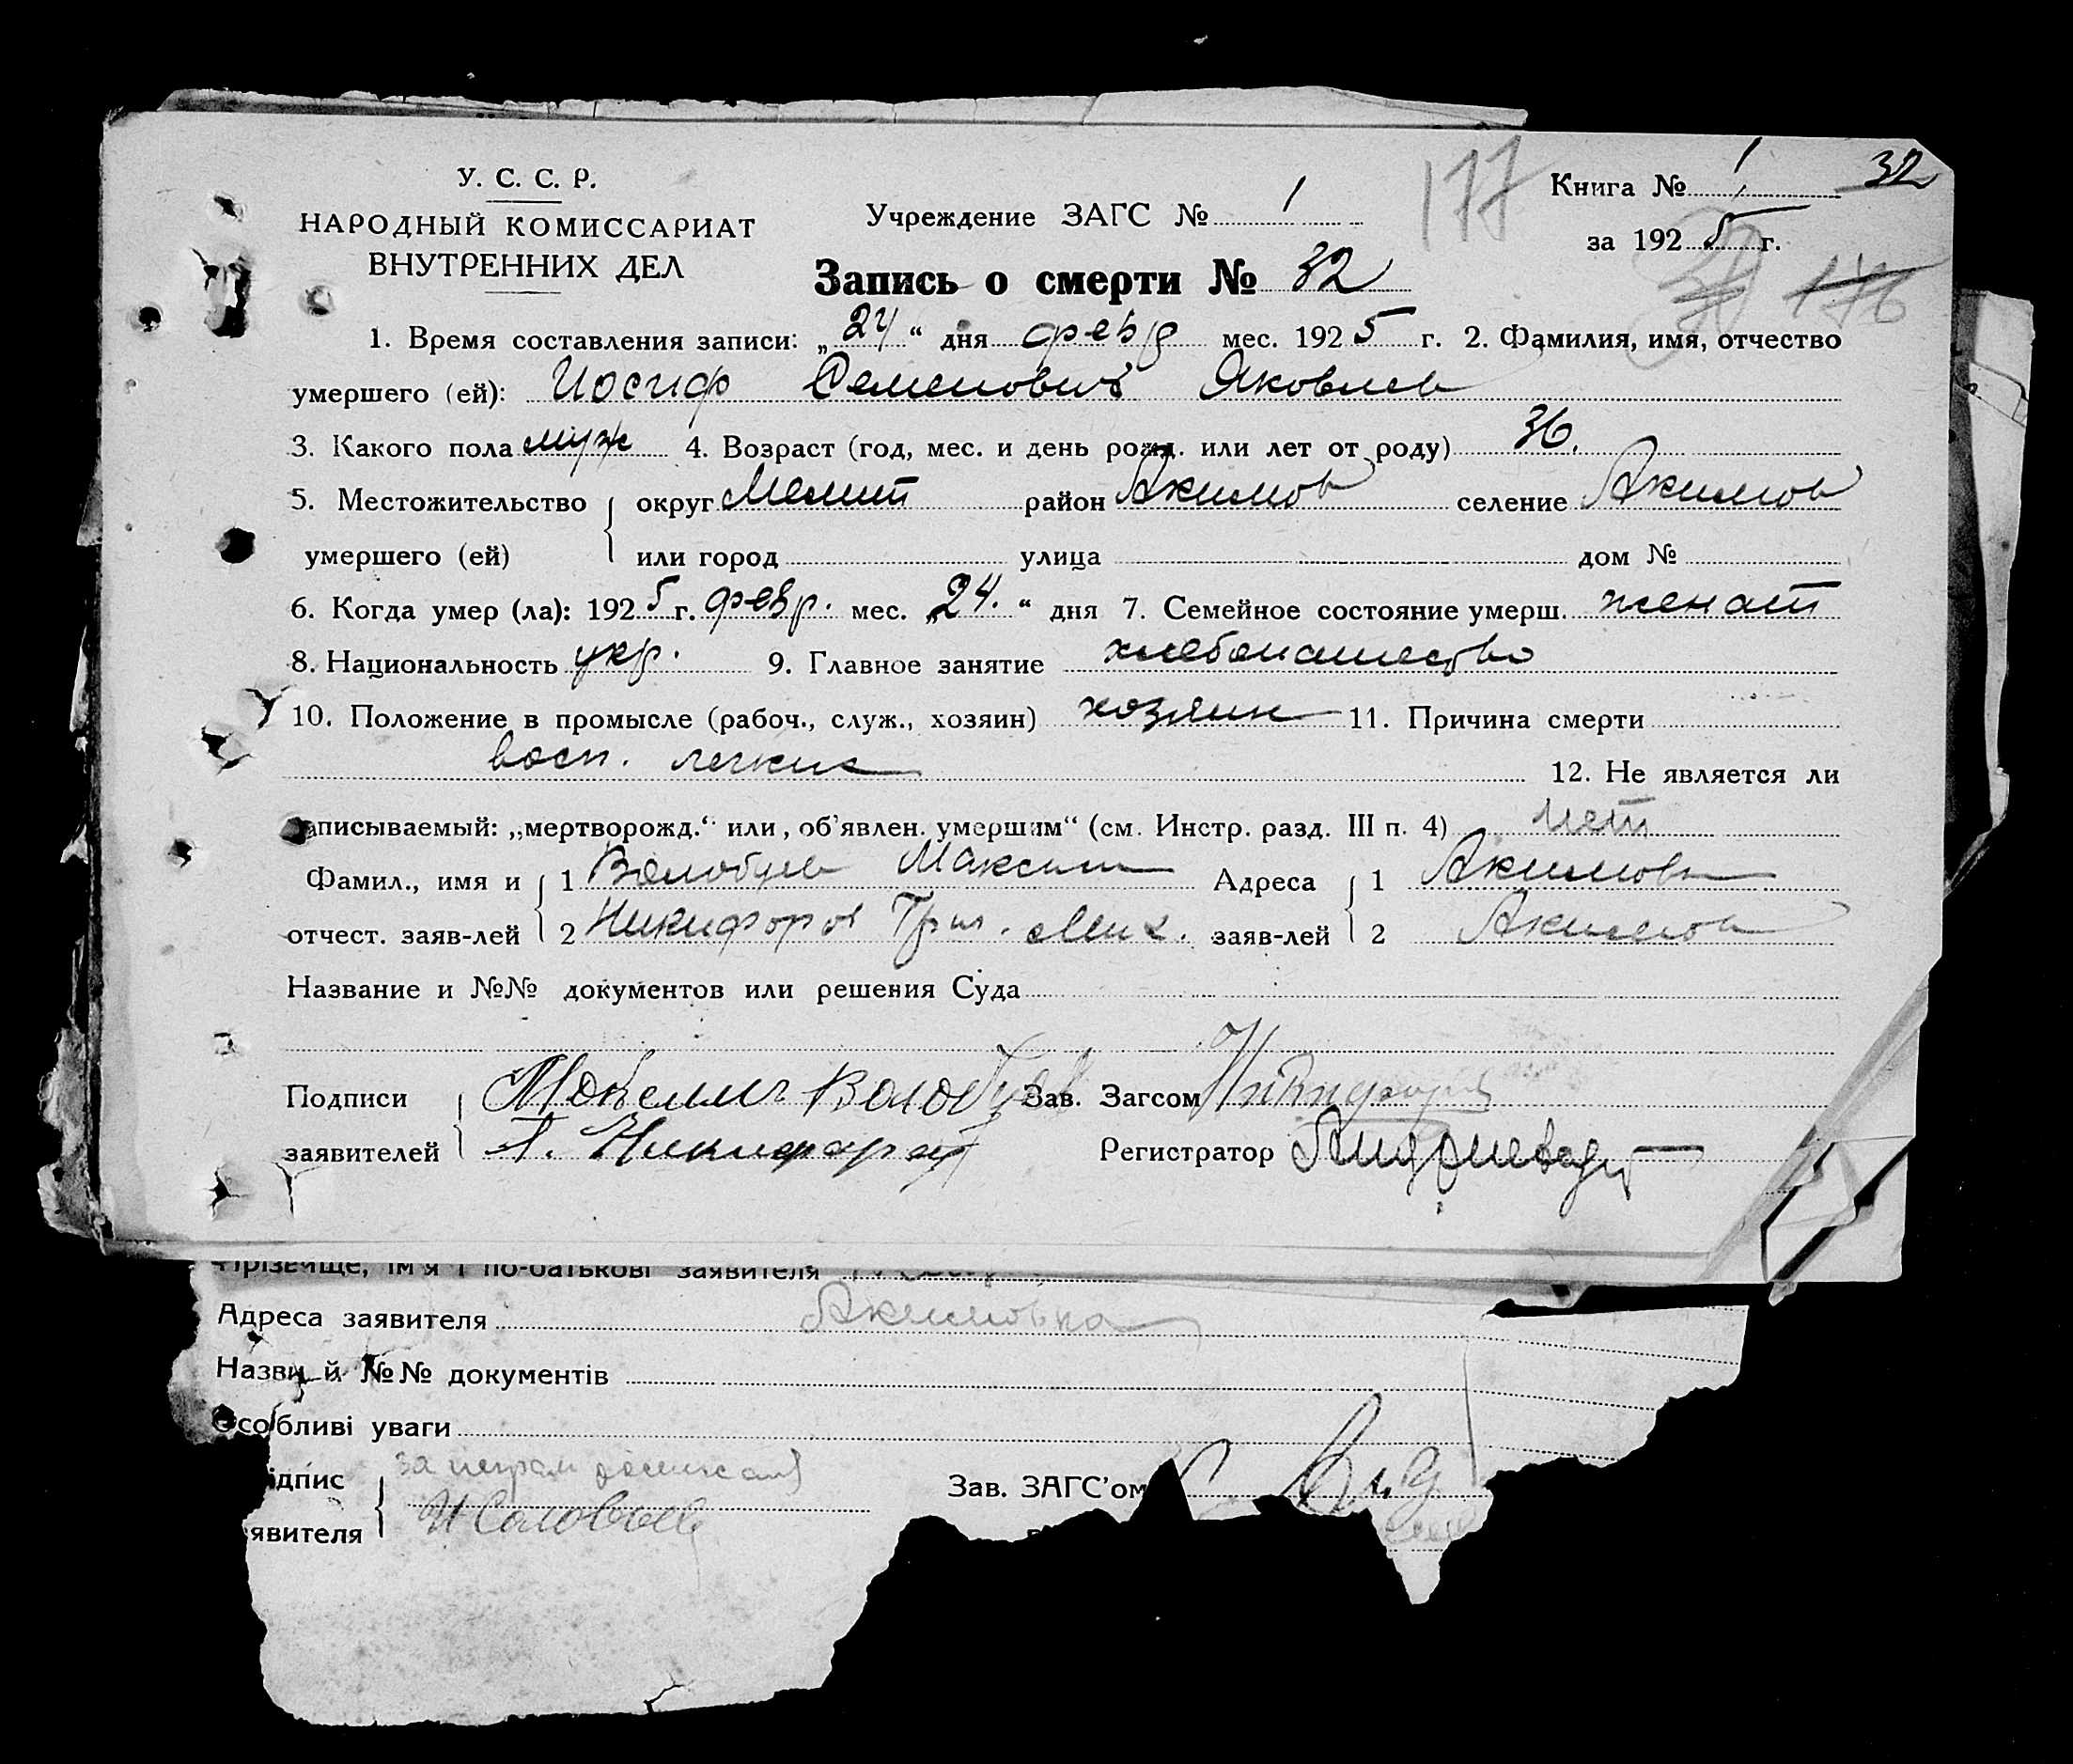 У. С. С. Р.
НАРОДНЫЙ КОМИССАРИАТ
ВНУТРЕННИХ ДЕЛ
Учреждение ЗАГС № 1
177
Книга № 1
32
за 1925 г.
176
Запись о смерти № 32
1. Время составления записи: „24“ дня февр мес. 1925 г. 2. Фамилия, имя, отчество
умершего (ей): Иосиф Семенович Яковлев
3. Какого пола муж 4. Возраст (год, мес. и день рожд. или лет от роду) 36.
5. Местожительство округ Мелит район Акимов селение Акимов
умершего (ей) или город улица дом №
6. Когда умер (ла): 1925 г. февр. мес. „24.“ дня 7. Семейное состояние умерш. женат
8. Национальность укр. 9. Главное занятие хлебопашество
10. Положение в промысле (рабоч., служ., хозяин) хозяин 11. Причина смерти
восп. легких 12. Не является ли
записываемый: „мертворожд.“ или „об’явлен. умершим“ (см. Инстр. разд. III п. 4) нет
Фамил., имя и 1 Волобуев Максим Адреса 1 Акимовка
отчест. заяв-лей 2 Никифоров Григ. Мих. заяв-лей 2 Акимов
Название и №№ документов или решения Суда
Подписи Волобуев Зав. Загсом
заявителей Г. Никифоров Регистратор
Прізвище, ім’я і по-батькові заявителя
Адреса заявителя Акимовка
Назви й №№ документів
Особливі уваги
ідпис за неграм
явителя Соловьев
Зав. ЗАГС’ом